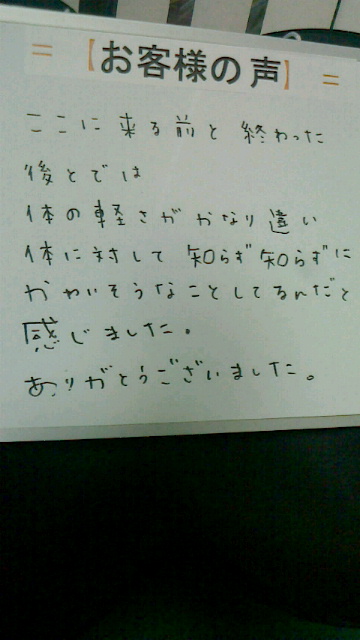 =【お客様の声】=
ここに来る前と終わった
後とでは
体の軽さがかなり違い
体に対して知らず知らずに
かわいそうなことしてるんだと
感じました。
ありがとうございました。